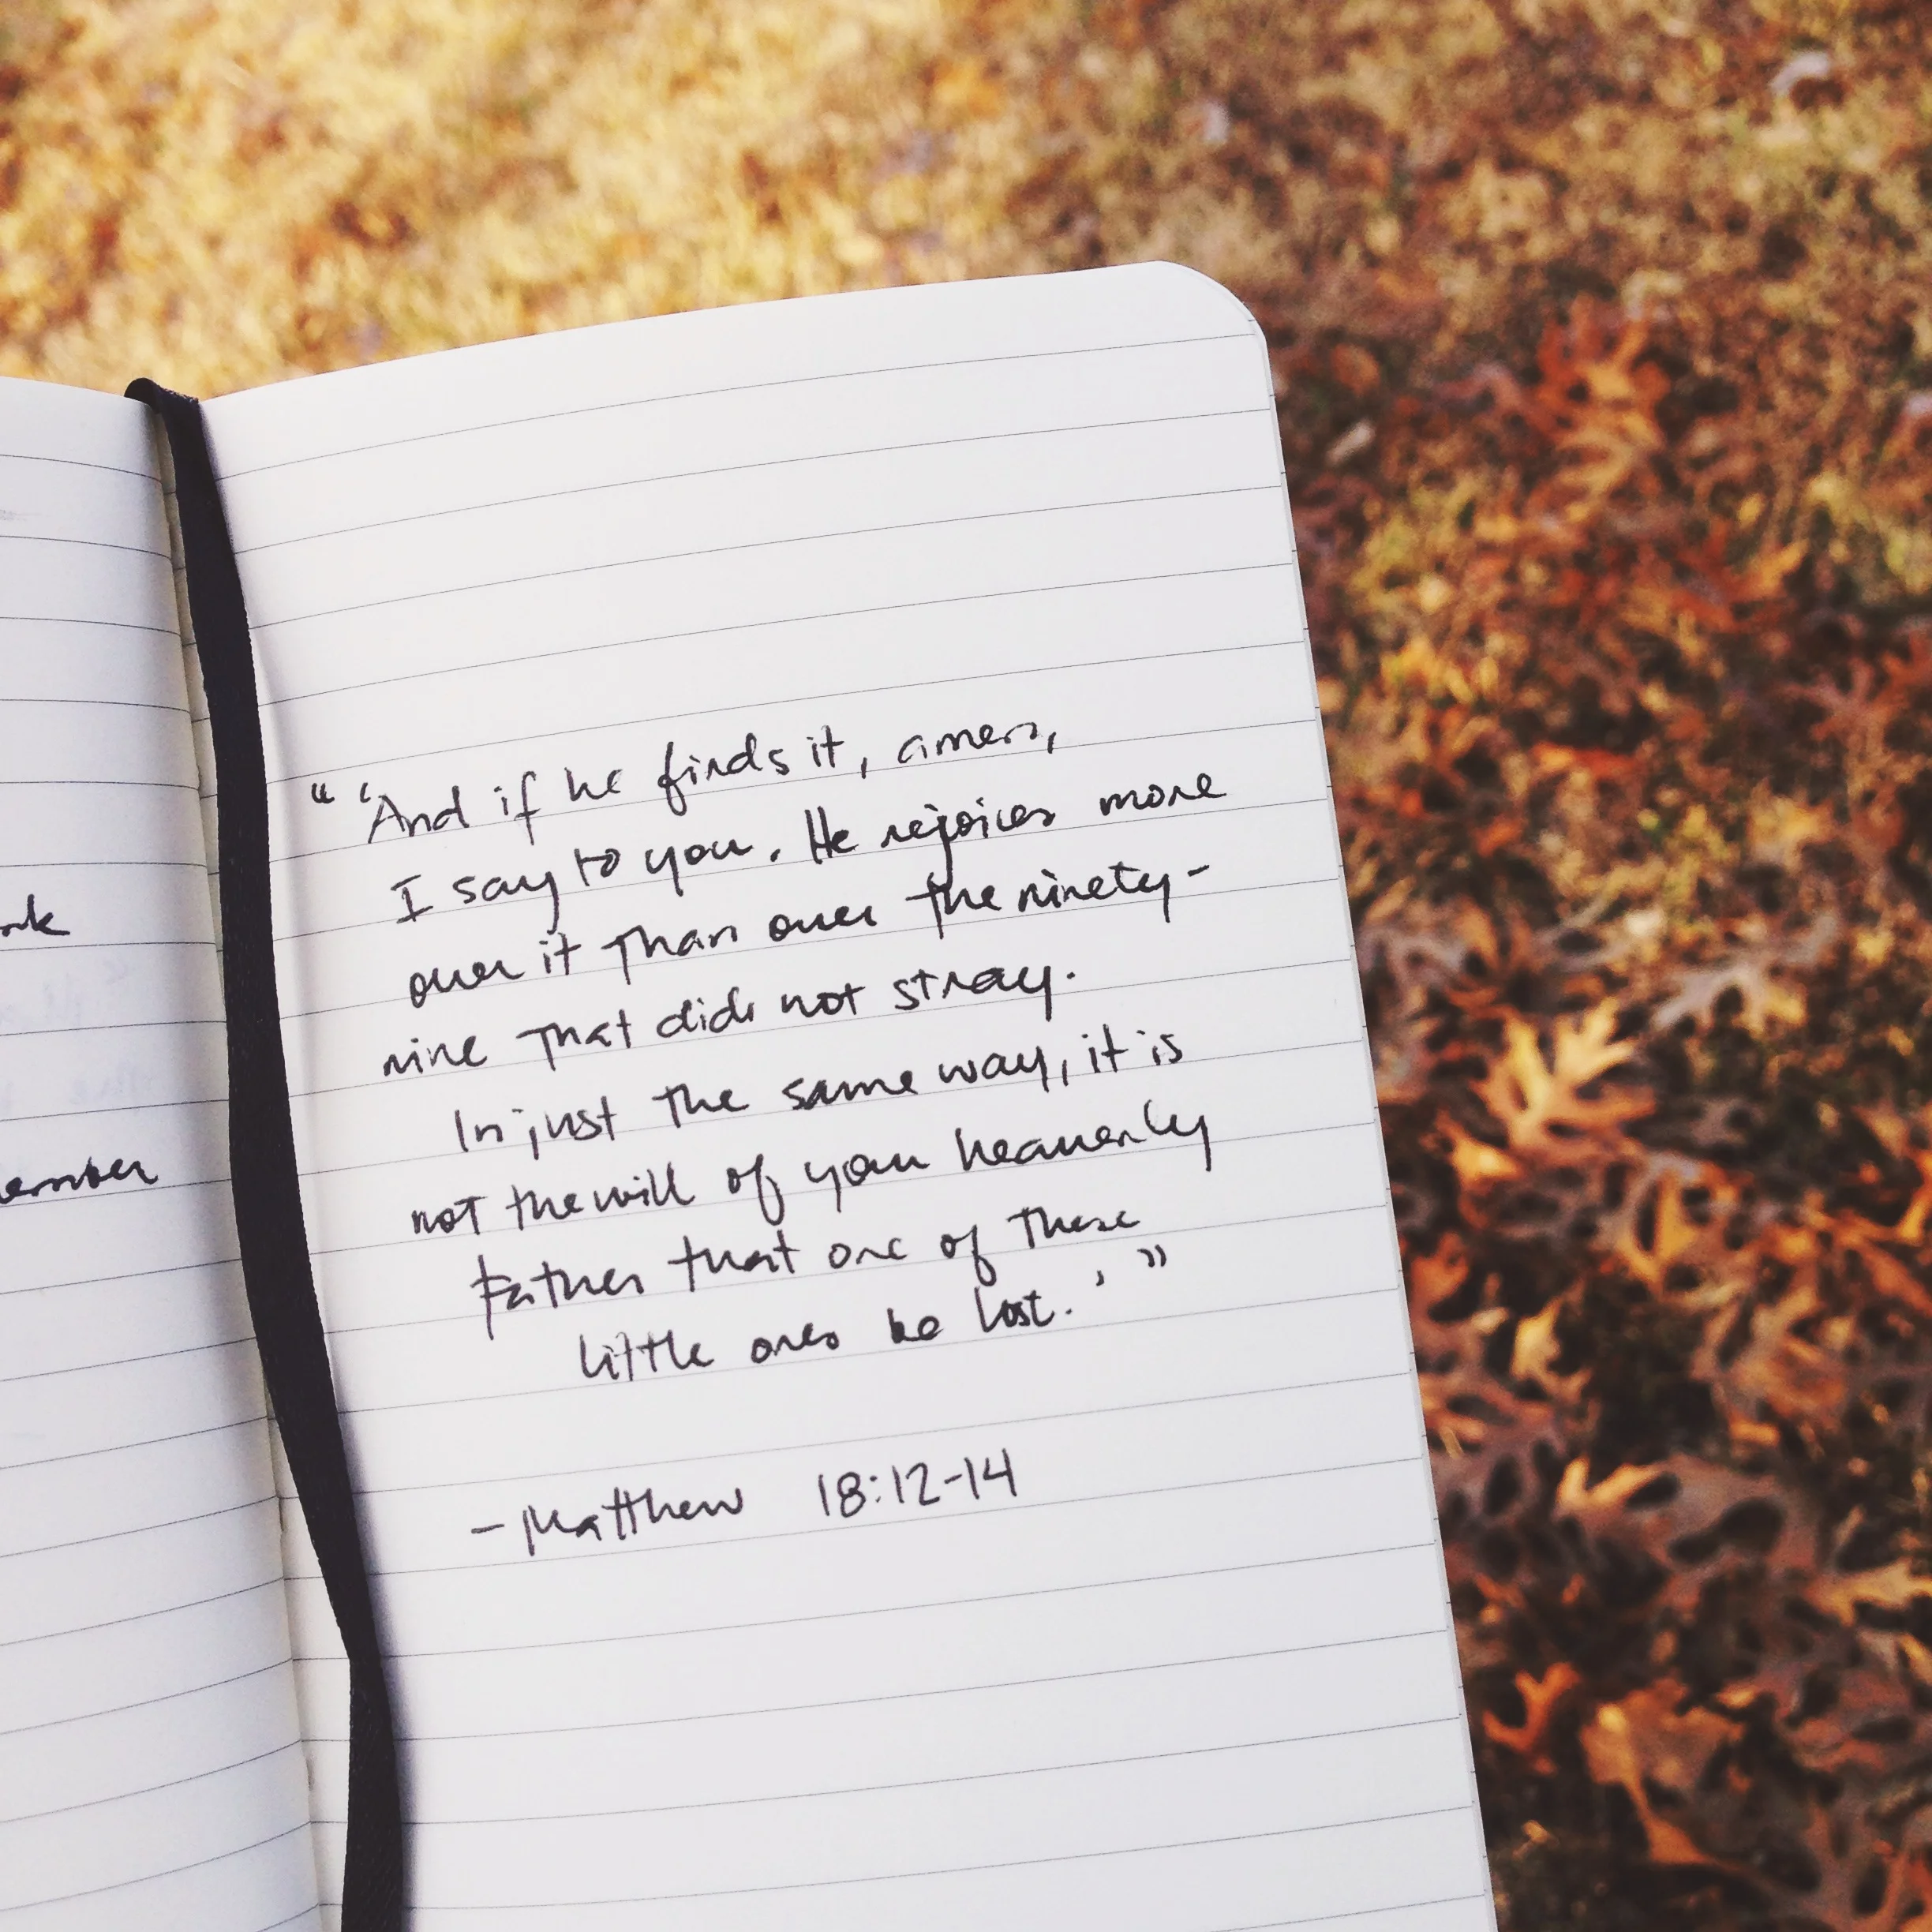 nk
ember
“ ‘And if he finds it, amen,
I say to you. He rejoices more
over it than over the ninety-
nine that did not stray.
In just the same way, it is
not the will of your heavenly
Father that one of these
little ones be lost.’ ”
- Matthew 18:12-14